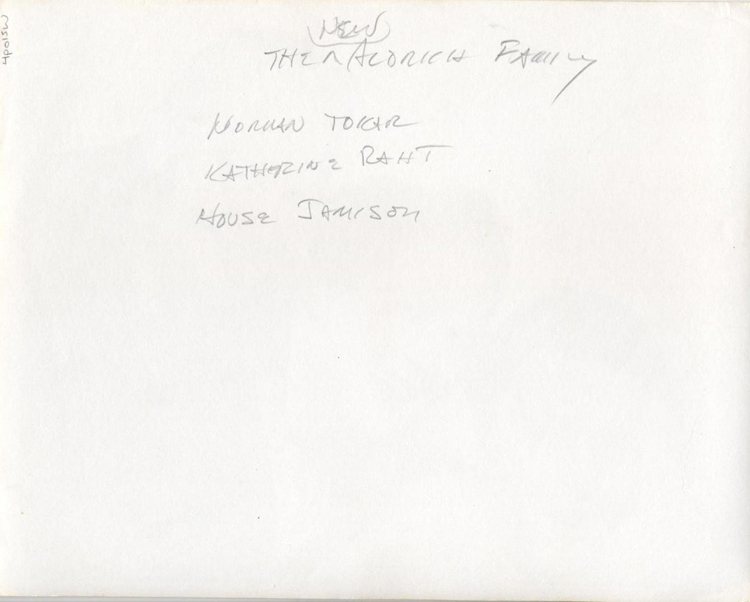 NEW
THE ALDRICH FAMILY
NORMAN TOKAR
KATHERINE RAHT
HOUSE JAMISON